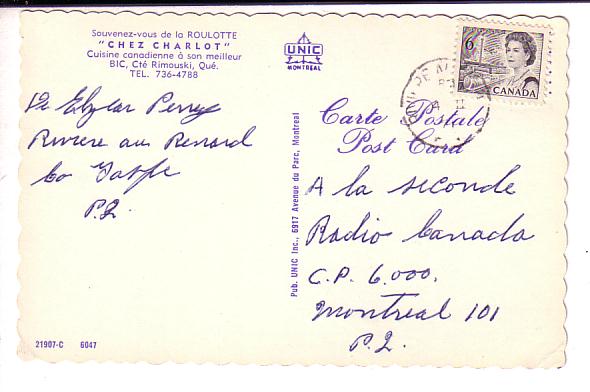 Souvenez-vous de la ROULOTTE
"CHEZ CHARLOT"
Cuisine canadienne à son meilleur
BIC, Cté Rimouski, Qué.
TEL. 736-4788
UNIC
MONTREAL
6
CANADA
Elzear Perrey
Riviere au Renard
Co Gaspe
P.Q.
Pub. UNIC Inc., 6917 Avenue du Parc, Montreal
Carte Postale
Post Card
A la seconde
Radio Canada
C.P. 6.000.
Montreal 101
P.Q.
21907-C 6047